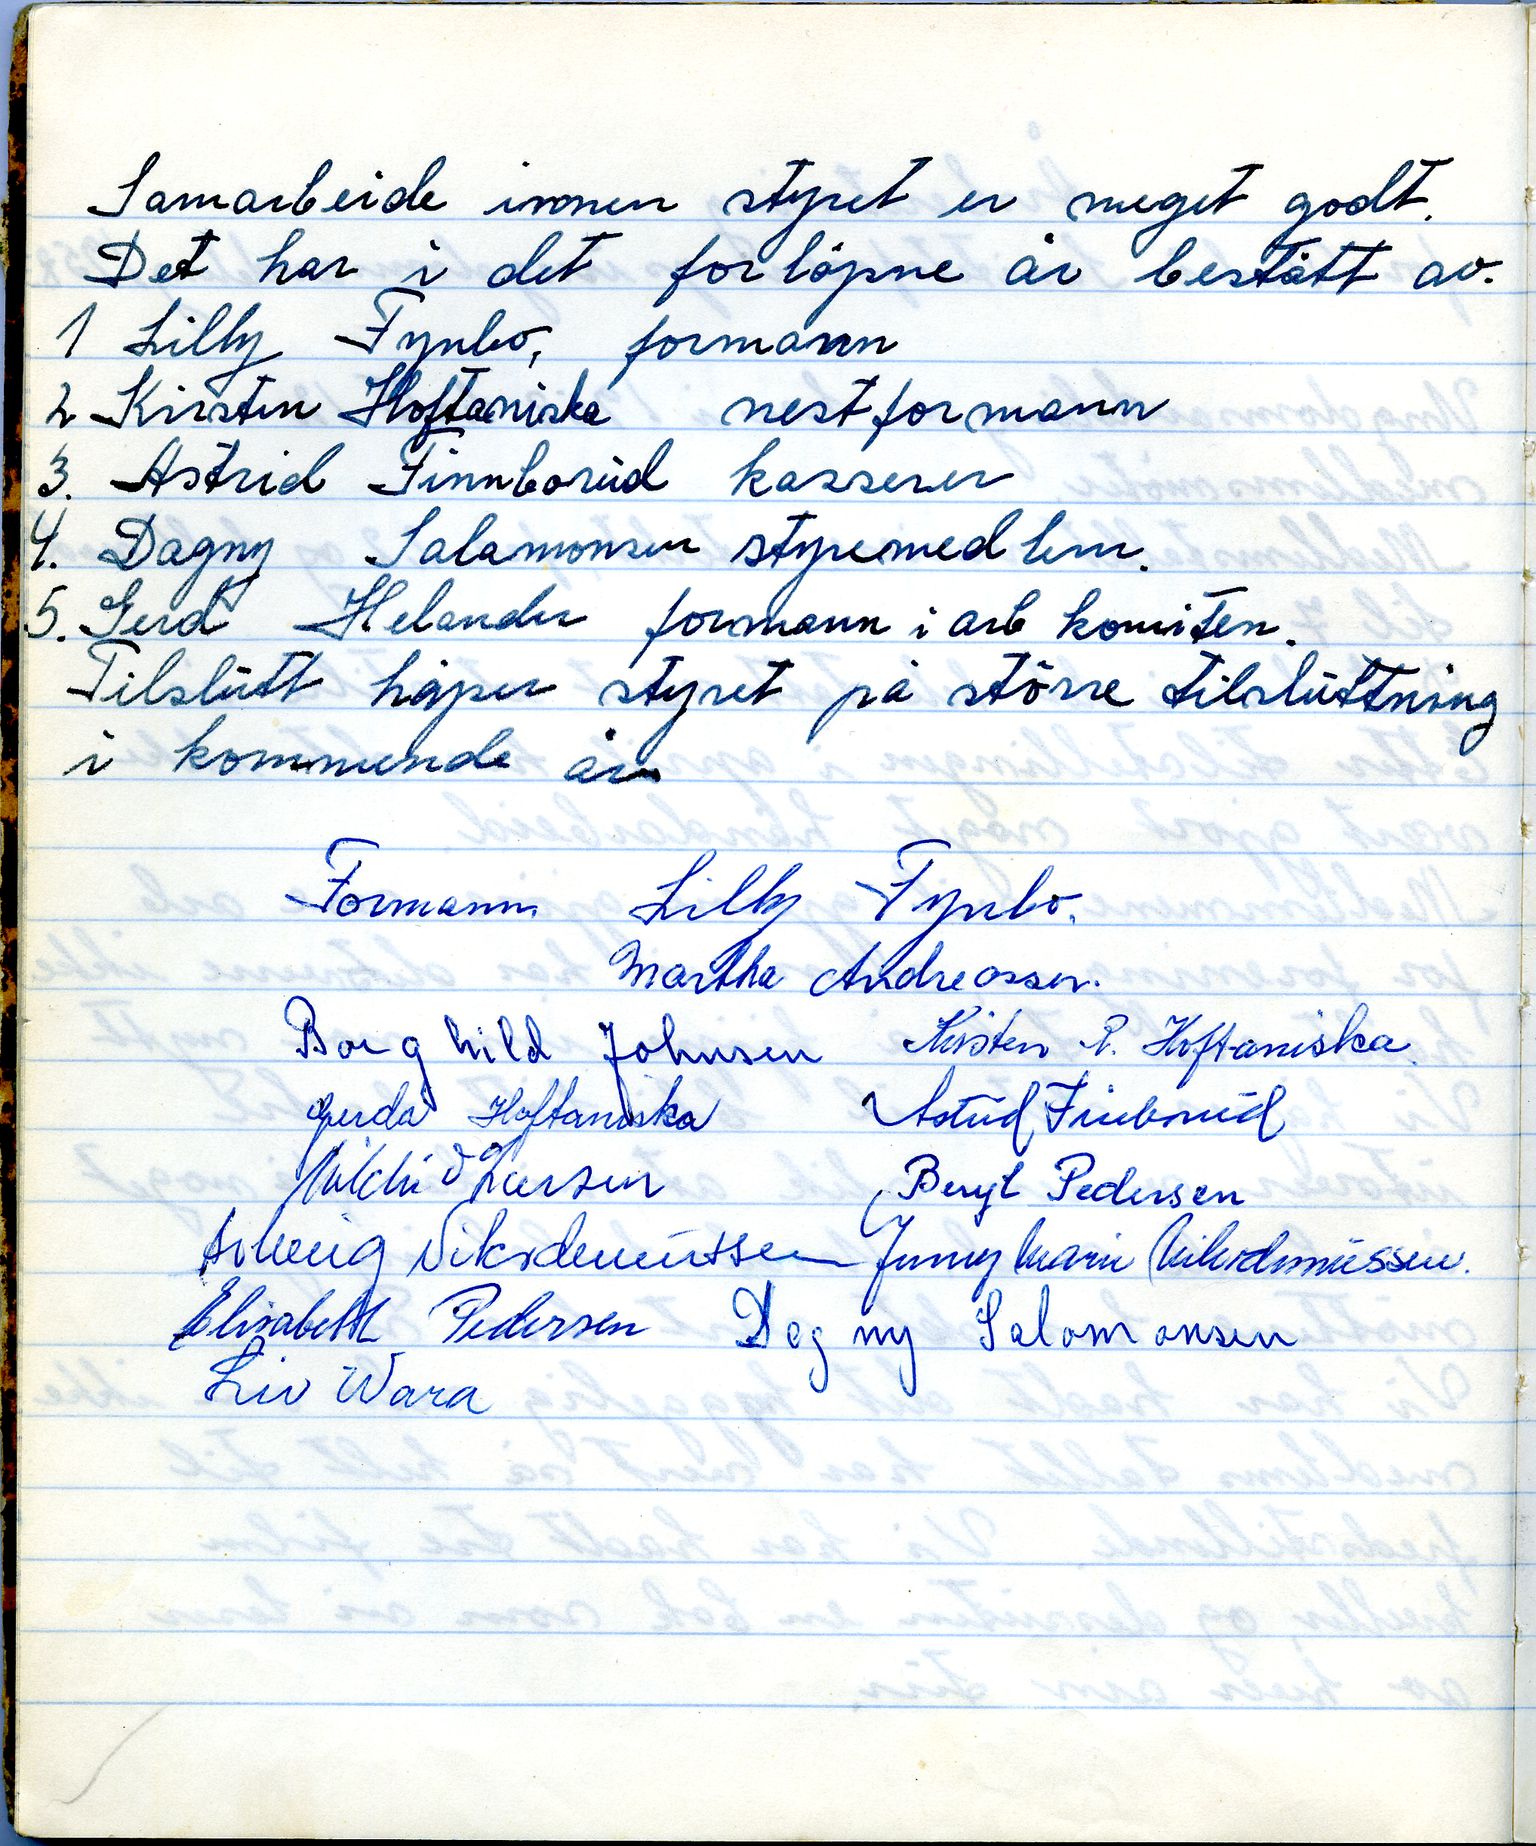 Samarbeide innen styret er meget godt.
Det har i det forløpne år bestått av.
1 Lilly Fynbo, formann
2 Kirsten Hoftaniska nestformann
3. Astrid Finnborud kasserer
4. Dagny Salamonsen styremedlem.
5. Gerd Helander formann i arb komiten.
Tilslutt håper styret på större tilsluttning
i kommende år
Formann Lilly Fynbo.
Martha Andreassen.
Borghild Johnsen Kirsten P. Hoftaniska.
Gerda Hoftaniska Astrid Finborud
Larsen Beryt Pedersen
Solveig Nikodemussen Jenny Marie Nikodemussen.
Elisabeth Pedersen Dagny Salomonsen
Liv Wara